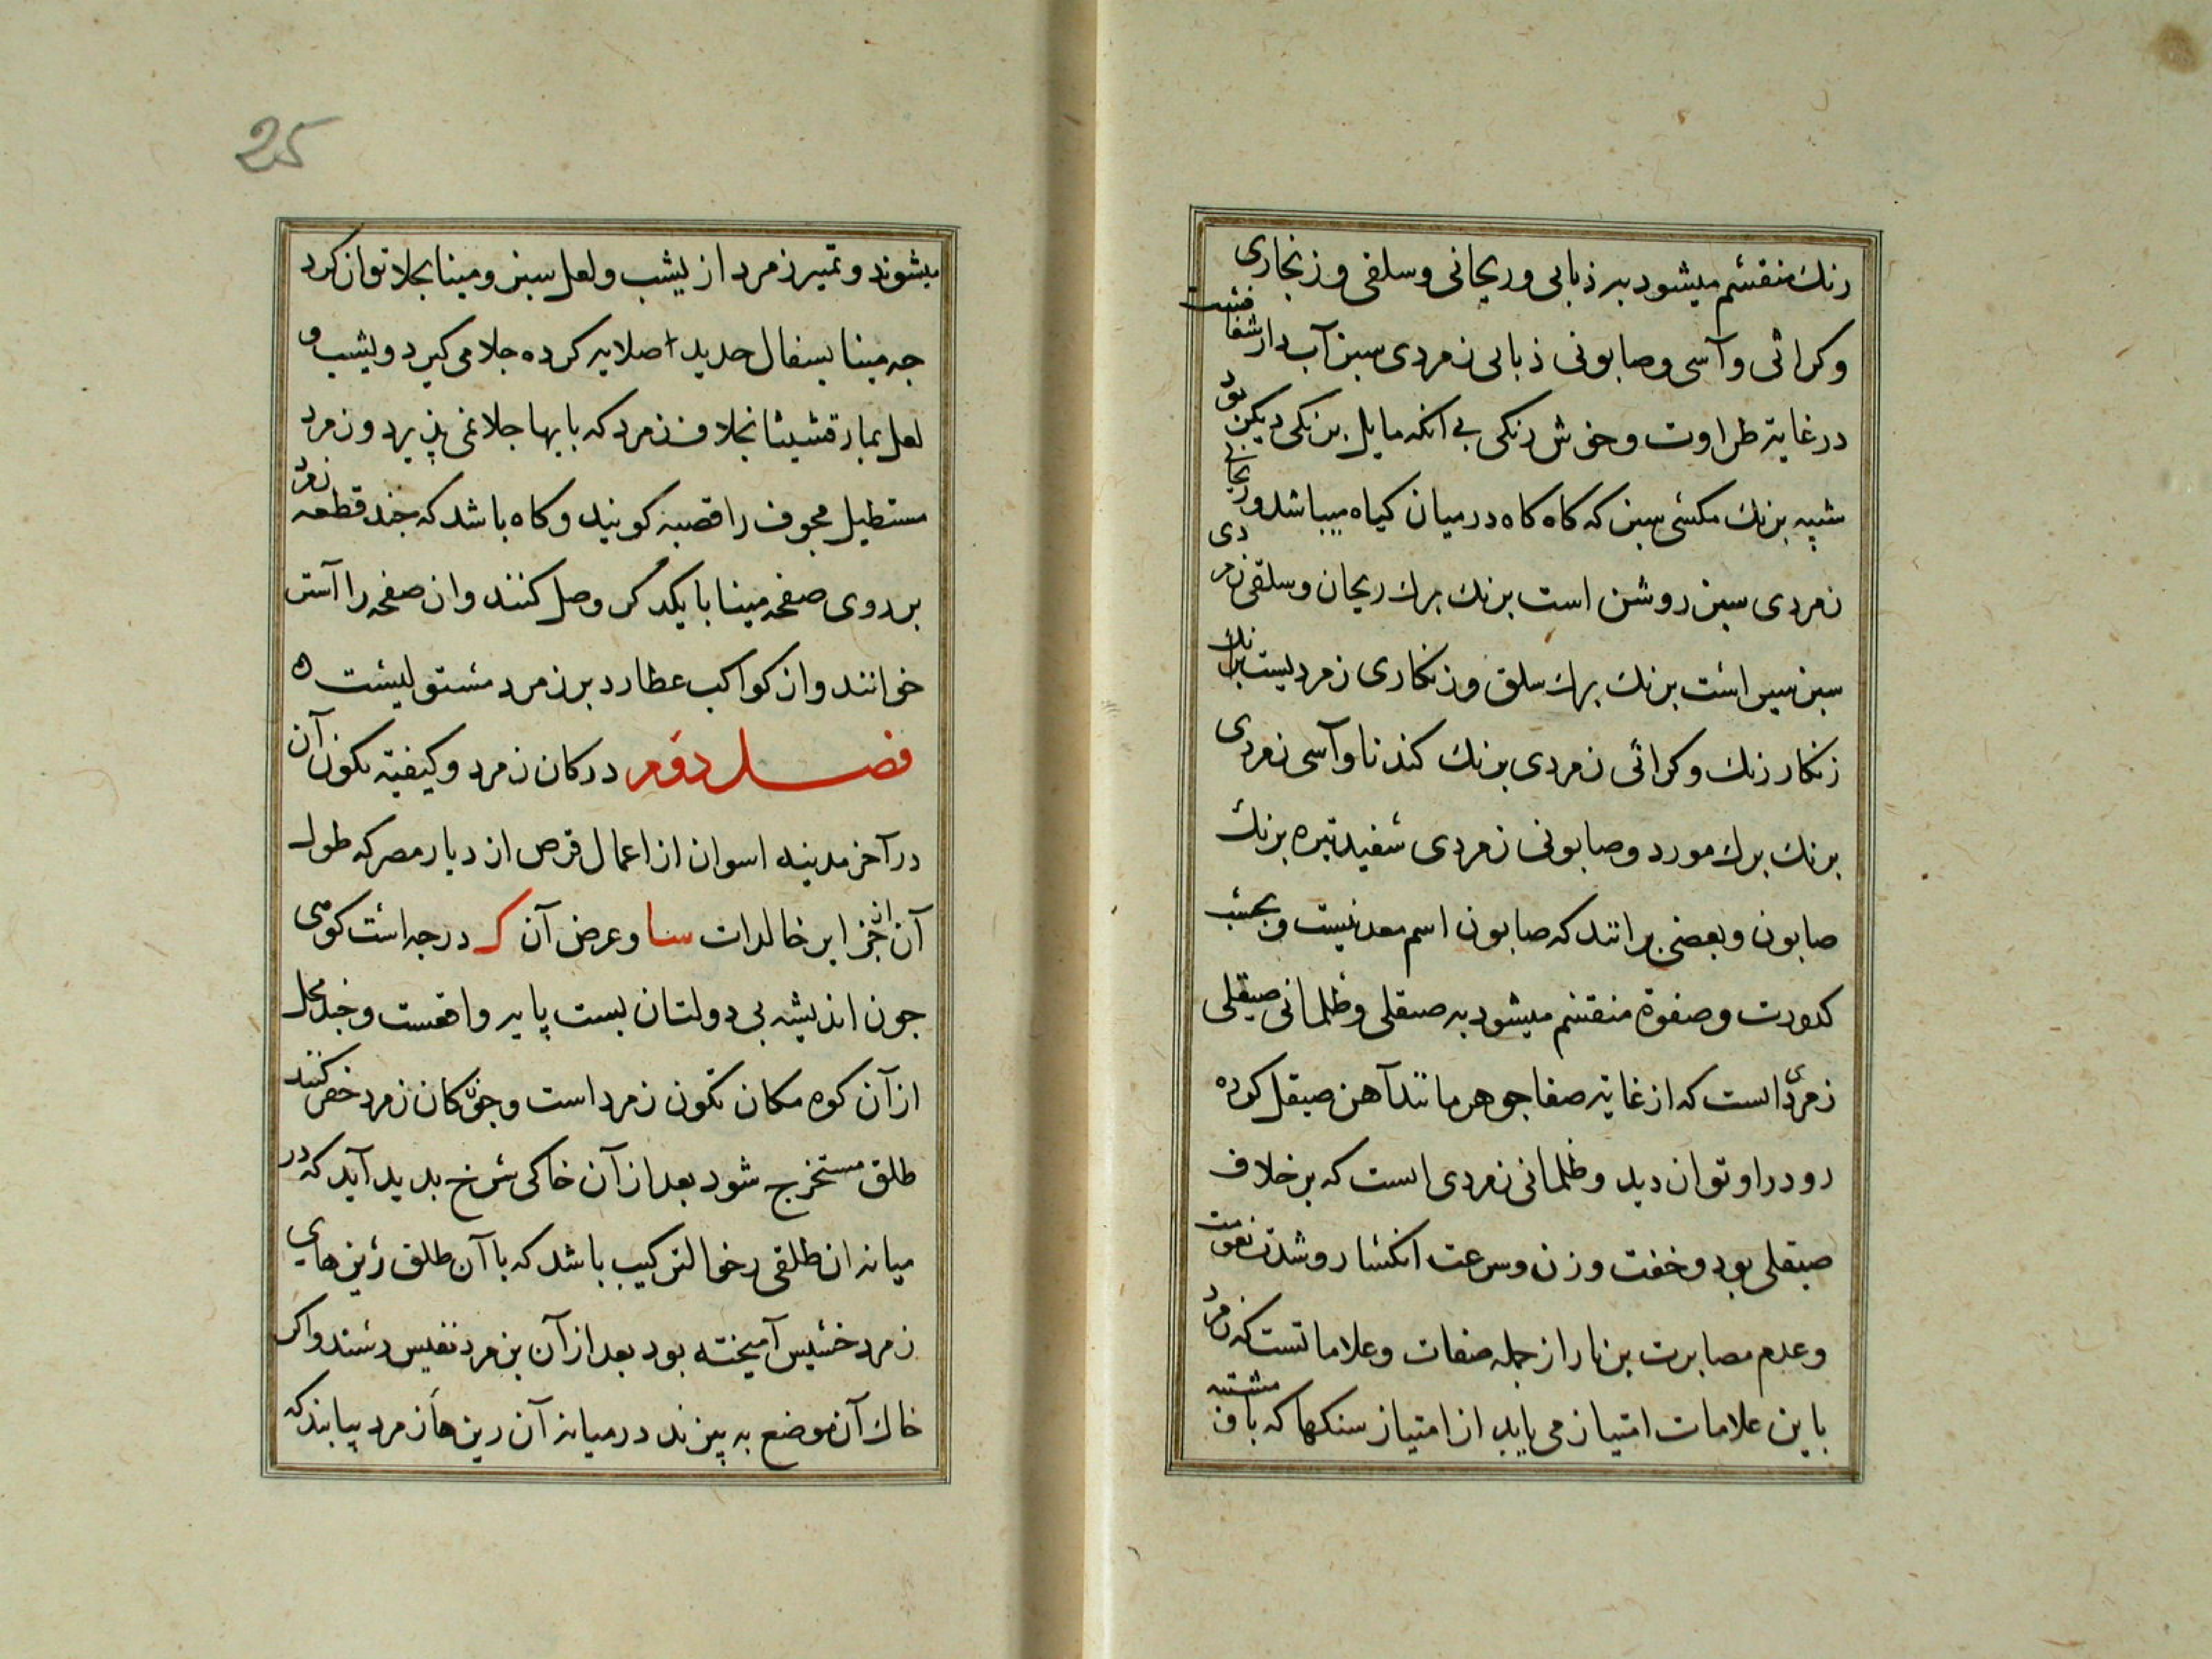 رنك منقسم میشود به ذبابی و ریحانی و سلقی و زنجاری
و کراثی و آسی و صابونی ذبابی زمردی سبز آب دار شفافست
در غایة طراوت و خوش رنکی بی انکه مایل برنکی دیکر بود
شبیه برنك مکسی سبز که کاه کاه در میان کیاه میباشد و ریحانی
زمردی سبز روشن است برنك برك ریحان و سلقی زمردی
سبز سیر است برنك برك سلق و زنکاری زمردیست برنك
زنکار رنك و کراثی زمردی برنك کندنا و آسی زمردی
برنك برك مورد و صابونی زمردی سفید تیره برنك
صابون و بعضی برانند که صابون اسم معدنیست و بحسب
کدورت و صفوة منقسم میشود به صیقلی و ظلمانی صیقلی
زمردی است که از غایة صفا جوهر مانند آهن صیقل کرده
رو در او توان دید و ظلمانی زمردی است که بر خلاف
صیقلی بود و خفت وزن و سرعت انکسار و شدت نعومت
و عدم مصابرت بر نار از جمله صفات و علاماتست که زمرد
باین علامات امتیاز می یابد از امتیاز سنکها که با و مشتبه
25
میشوند و تمیز زمرد از یشب و لعل سبز و مینا بجلا توان کرد
جه مینا بسفال جدید صلایه کرده جلا می کیرد و یشب و
لعل بمارقشیشا بخلاف زمرد که باینها جلا نمی پذیرد و زمرد
مستطیل مجوف را قصبه کویند و کاه باشد که جند قطعه زمرد
بر روی صفحه مینا با یکدکر وصل کنند و ان صفحه را آستر
خوانند و از کواکب عطارد بر زمرد مستولیست ه
فصل دوم در کان زمرد و کیفیة تکون آن
در آخر مدینه اسوان از اعمال قرص از دیار مصر که طول
آن از جزایر خالدات سا و عرض آن کـ درجه است کوهی
جون اندیشه بی دولتان بست پایه واقعست و جند محل
از آن کوه مکان تکون زمرد است و جون کان زمرد حفر کنند
طلق مستخرج شود بعد از آن خاکی سرخ بدید آید که در
میانه ان طلقی رخو الترکیب باشد که با آن طلق ریزهای
زمرد خسیس آمیخته بود بعد از آن بزمرد نفیس رسند و اکر
خاك آن موضع به بیزند در میانه آن ریزها زمرد بیابند که